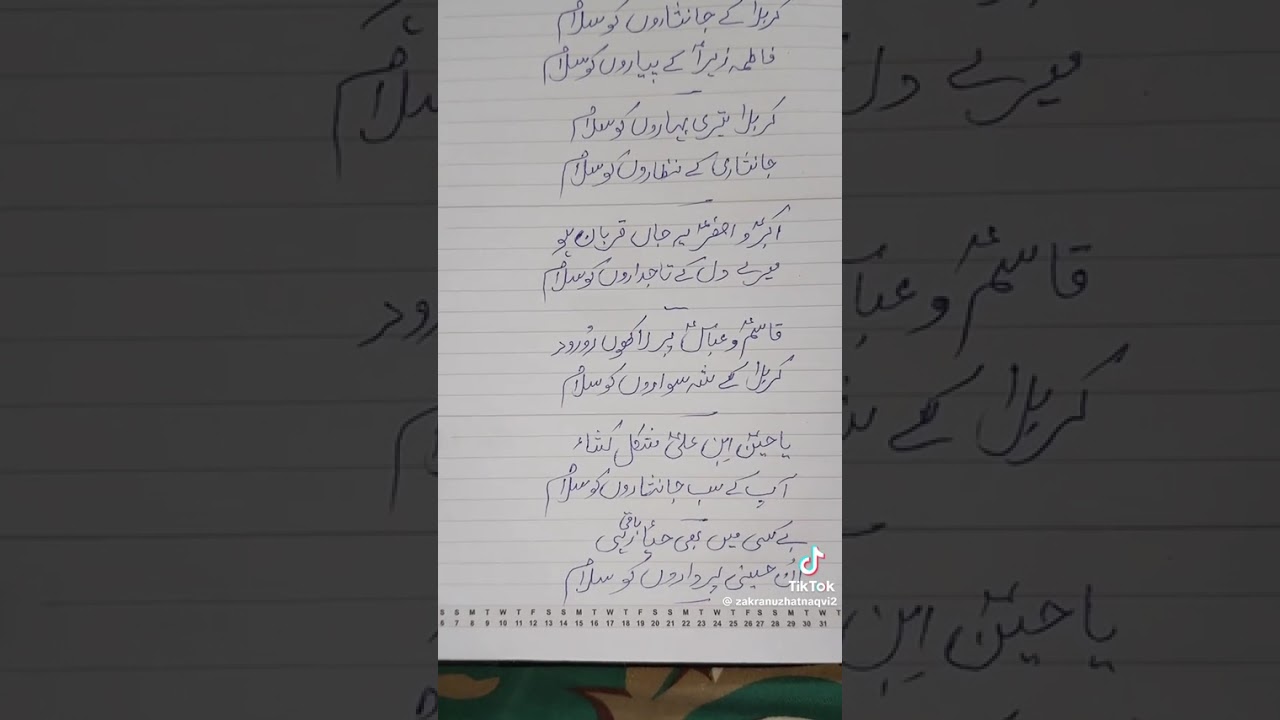 کربلا کے جانثاروں کو سلام
فاطمہ زہرا کے پیاروں کو سلام
کربلا تیری بہاروں کو سلام
جانثاری کے نظاروں کو سلام
اکبرؑ و اصغرؑ پہ جاں قربان ہو
میرے دل کے تاجداروں کو سلام
قاسمؑ و عباسؑ پر لاکھوں دُورود
کربلا کے شہ سواروں کو سلام
یا حسینؑ اِبنِ علیؑ مشکل کشاء
آپ کے سب جانثاروں کو سلام
بے کسی میں بھی حیا باقی رہی
اُن حسینی پرداروں کو سلام
TikTok
@ zakranuzhatnaqvi2
S S M T W T F S S M T W T F S S M T W T F S S M T W T
6 7 8 9 10 11 12 13 14 15 16 17 18 19 20 21 22 23 24 25 26 27 28 29 30 31